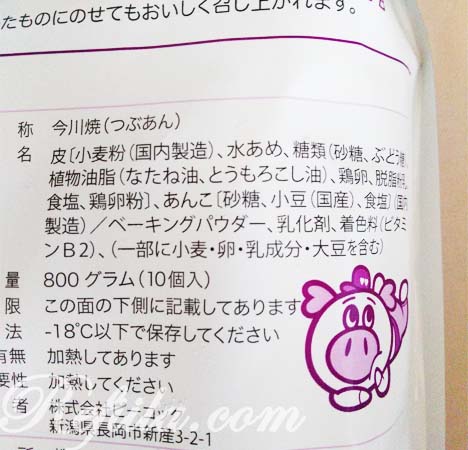 たものにのせてもおいしく召し上がれます。
称 今川焼(つぶあん)
名 皮〔小麦粉(国内製造)、水あめ、糖類(砂糖、ぶどう糖)、
植物油脂(なたね油、とうもろこし油)、鶏卵、脱脂粉乳、
食塩、鶏卵粉〕、あんこ〔砂糖、小豆(国産)、食塩〕(国内
製造)/ベーキングパウダー、乳化剤、着色料(ビタミ
ンB2)、(一部に小麦・卵・乳成分・大豆を含む)
量 800グラム(10個入)
限 この面の下側に記載してあります
法 -18℃以下で保存してください
有無 加熱してあります
要性 加熱してください
者 株式会社
新潟県長岡市新産3-2-1
.com